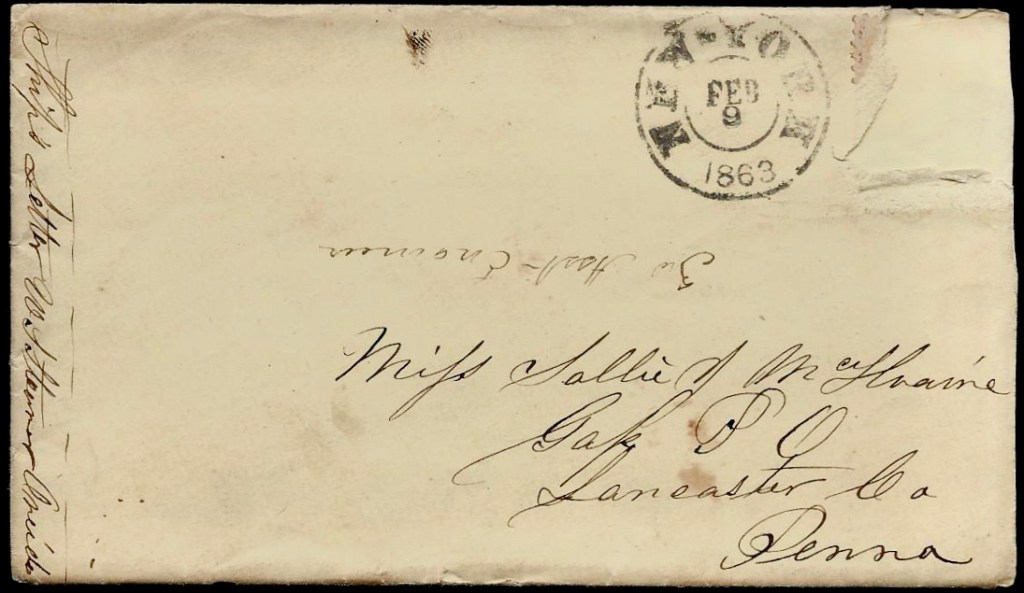 NEW-YORK
FEB
9
1863
Ship's Letter U.S. Steamer Oneida
3d Asst-Engineer
Miss Sallie J McIlvaine
Gap P O
Lancaster Co
Penna